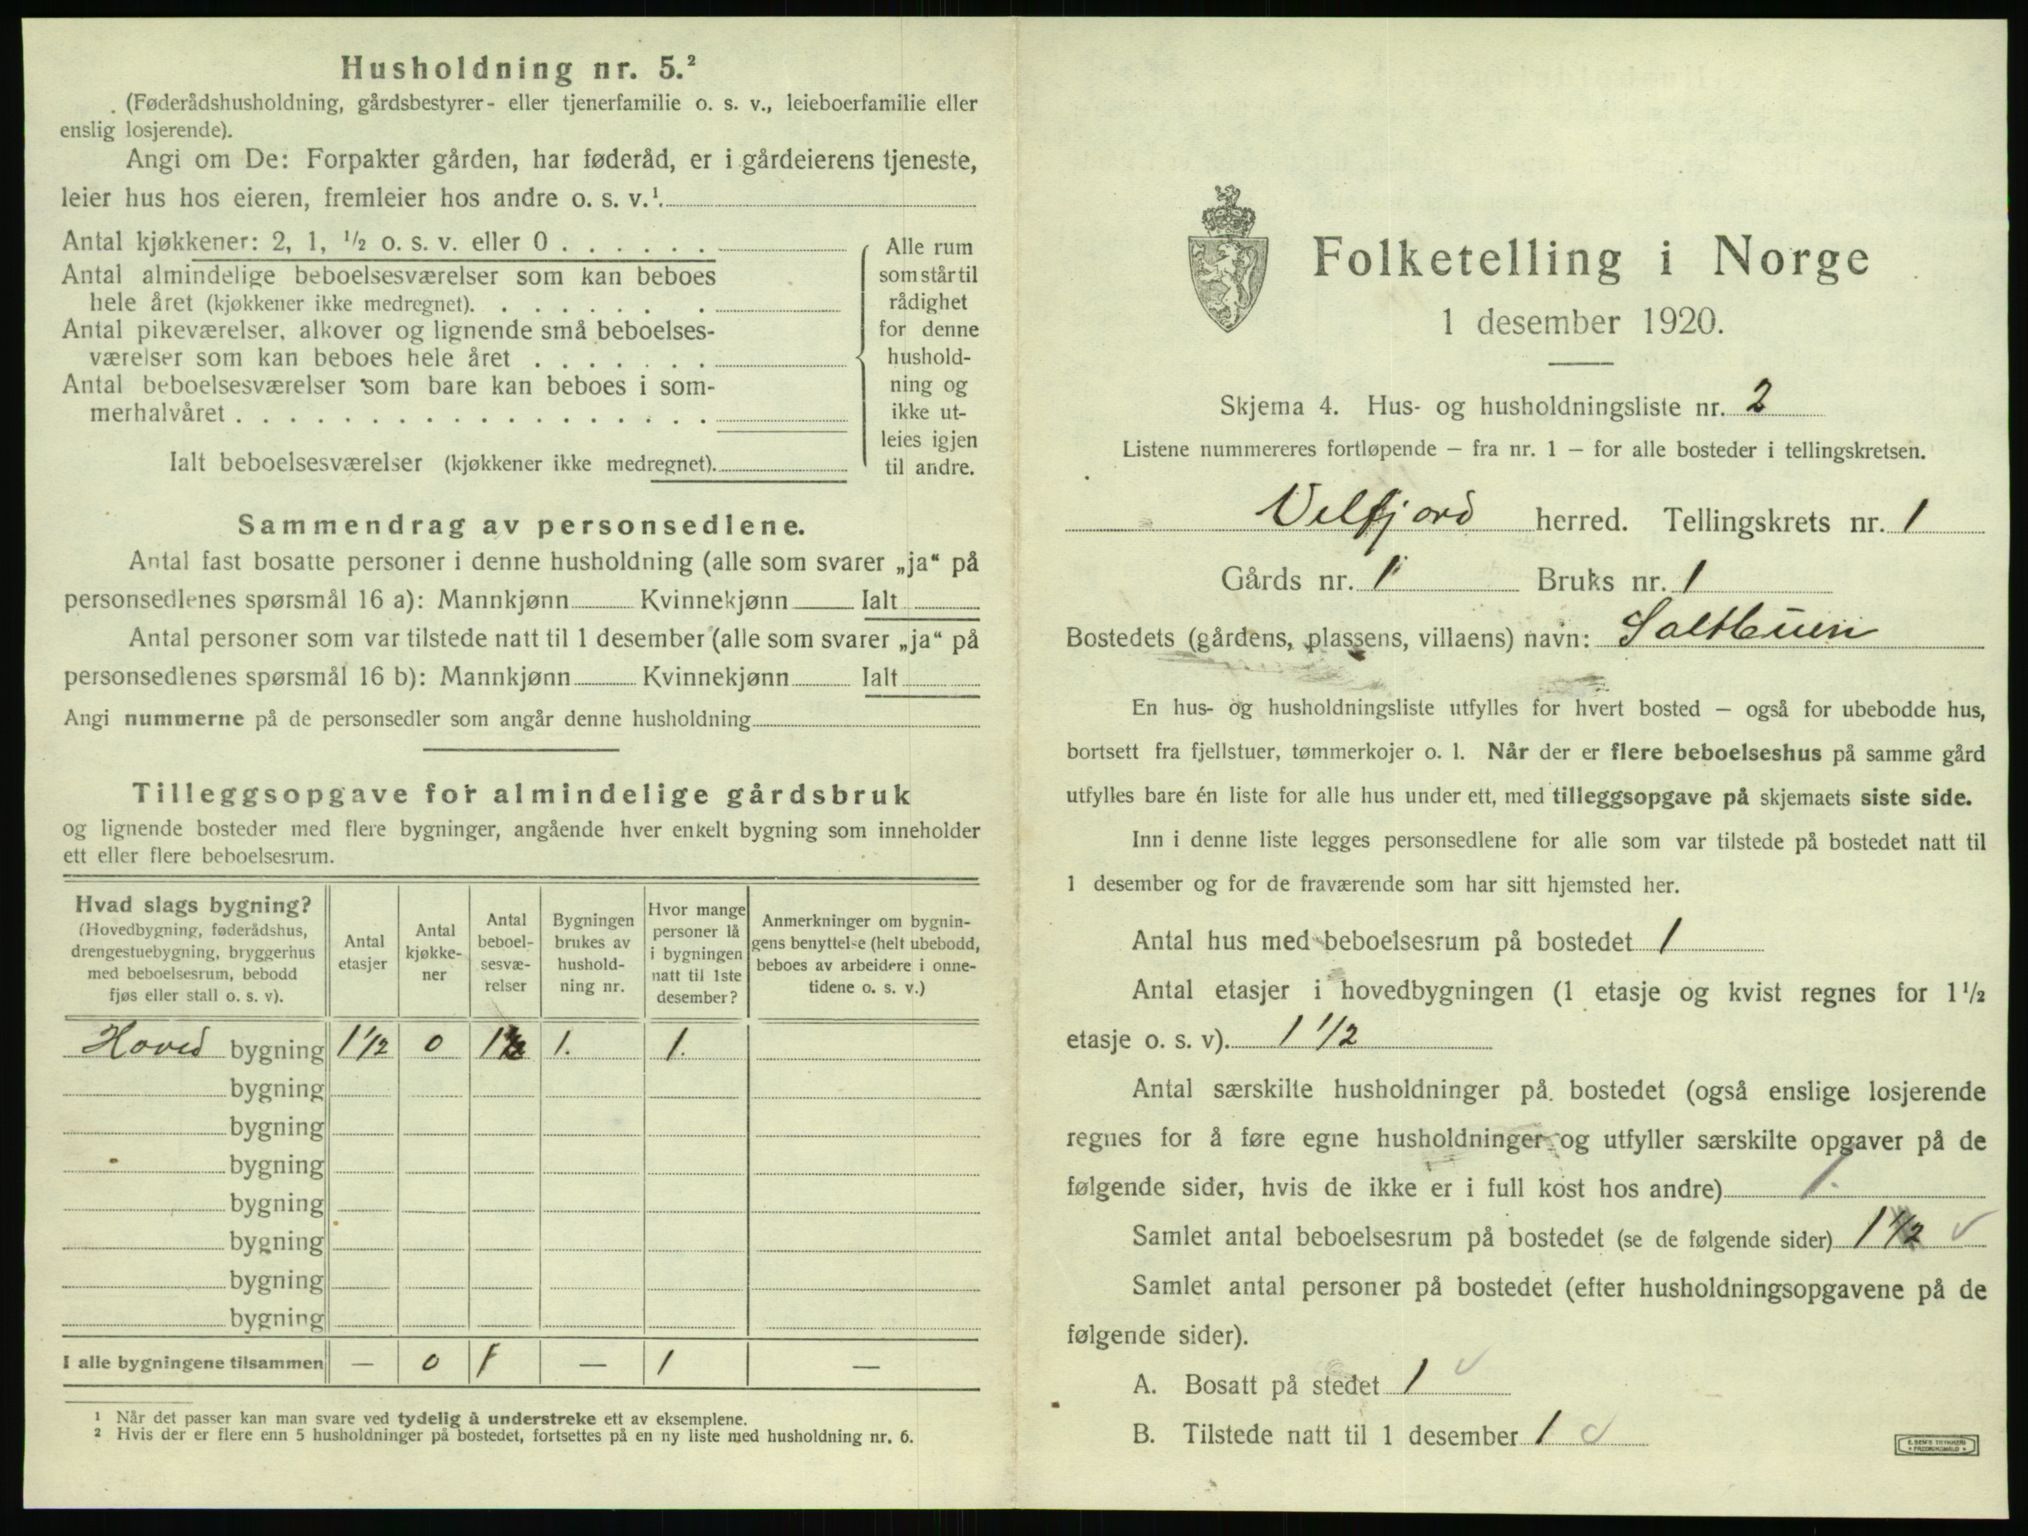 Husholdning nr. 5.²
(Føderådshusholdning, gårdsbestyrer- eller tjenerfamilie o. s. v., leieboerfamilie eller
enslig losjerende).
Angi om De: Forpakter gården, har føderåd, er i gårdeierens tjeneste,
leier hus hos eieren, fremleier hos andre o. s. v.¹.
Antal kjøkkener: 2, 1, ½ o. s. v. eller 0 . . . . . .
Antal almindelige beboelsesværelser som kan beboes
hele året (kjøkkener ikke medregnet). . . . . . . .
Antal pikeværelser, alkover og lignende små beboelses-
værelser som kan beboes hele året . . . . . . .
Antal beboelsesværelser som bare kan beboes i som-
merhalvåret . . . . . . . . . . . . . . . . . .
Ialt beboelsesværelser (kjøkkener ikke medregnet).
Alle rum
som står til
rådighet
for denne
hushold-
ning og
ikke ut-
leies igjen
til andre.
Sammendrag av personsedlene.
Antal fast bosatte personer i denne husholdning (alle som svarer „ja“ på
personsedlenes spørsmål 16 a): Mannkjønn Kvinnekjønn Ialt
Antal personer som var tilstede natt til 1 desember (alle som svarer „ja“ på
personsedlenes spørsmål 16 b): Mannkjønn Kvinnekjønn Ialt
Angi nummerne på de personsedler som angår denne husholdning
Tilleggsopgave for almindelige gårdsbruk
og lignende bosteder med flere bygninger, angående hver enkelt bygning som inneholder
ett eller flere beboelsesrum.
Hvad slags bygning?
(Hovedbygning, føderådshus,
drengestuebygning, bryggerhus
med beboelsesrum, bebodd
fjøs eller stall o. s. v).
Antal
etasjer
Antal
kjøkke-
ner
Antal
beboel-
sesvæ-
relser
Bygningen
brukes av
hushold-
ning nr.
Hvor mange
personer lå
i bygningen
natt til 1ste
desember?
Anmerkninger om bygnin-
gens benyttelse (helt ubebodd,
beboes av arbeidere i onne-
tidene o. s. v.)
Hoved bygning 1½ 0 1½ 1. 1.
bygning
bygning
bygning
bygning
bygning
bygning
bygning
I alle bygningene tilsammen — 0 1 — 1 —
¹ Når det passer kan man svare ved tydelig å understreke ett av eksemplene.
² Hvis der er flere enn 5 husholdninger på bostedet, fortsettes på en ny liste med husholdning nr. 6.
Folketelling i Norge
1 desember 1920.
Skjema 4. Hus- og husholdningsliste nr. 2
Listene nummereres fortløpende – fra nr. 1 – for alle bosteder i tellingskretsen.
Velfjord herred. Tellingskrets nr. 1
Gårds nr. 1 Bruks nr. 1
Bostedets (gårdens, plassens, villaens) navn: Saltbuen
En hus- og husholdningsliste utfylles for hvert bosted – også for ubebodde hus,
bortsett fra fjellstuer, tømmerkojer o. l. Når der er flere beboelseshus på samme gård
utfylles bare én liste for alle hus under ett, med tilleggsopgave på skjemaets siste side.
Inn i denne liste legges personsedlene for alle som var tilstede på bostedet natt til
1 desember og for de fraværende som har sitt hjemsted her.
Antal hus med beboelsesrum på bostedet 1
Antal etasjer i hovedbygningen (1 etasje og kvist regnes for 1½
etasje o. s. v). 1½
Antal særskilte husholdninger på bostedet (også enslige losjerende
regnes for å føre egne husholdninger og utfyller særskilte opgaver på de
følgende sider, hvis de ikke er i full kost hos andre) 1.
Samlet antal beboelsesrum på bostedet (se de følgende sider) 1½ ✓
Samlet antal personer på bostedet (efter husholdningsopgavene på de
følgende sider).
A. Bosatt på stedet 1 ✓
B. Tilstede natt til 1 desember 1 ✓